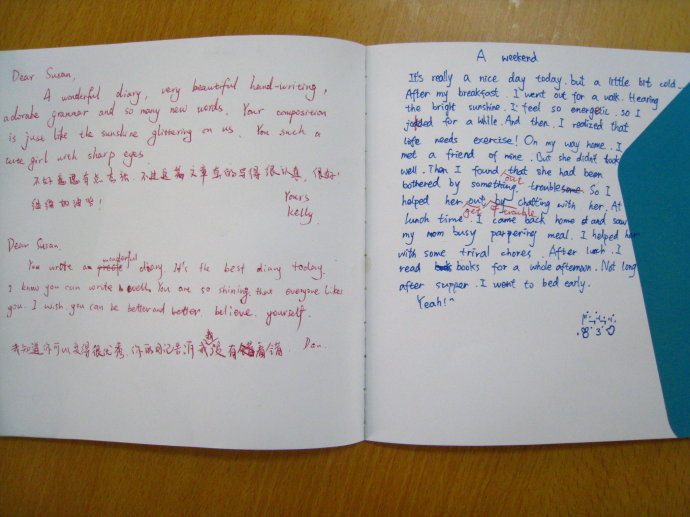 Dear Susan,
A wonderful diary, very beautiful hand-writing,
adorabe grannar and so many new words. Your composition
is just like the sunshine glittering on us. You such a
cute girl with sharp eyes.
继续加油哟!
Yours
Kelly
Dear Susan.
wonderful
You wrote a diary. It's the best diary today.
I know you can write well. You are so shining that everyone likes
you. I wish you can be better and better. believe yourself.
我知道你可以变得很优秀.
Dan.
A weekend
It's really a nice day today. but a little bit cold.
After my breakfast. I went out for a walk. Hearing
the bright sunshine. I feel so energetic. so I
jogged for a while. And then. I realized that
life needs exercise! On my way home. I
met a friend of mine. But she didn't look
well. Then I found that she had been
out
bothered by something. troublesome So I
helped her out by chatting with her. At
get trouble
lunch time. I came back home and saw
my mom busy parpering meal. I helped her
with some trival chores. After lunch. I
read books for a whole afternoon. Not long
after supper. I went to bed early.
Yeah!^